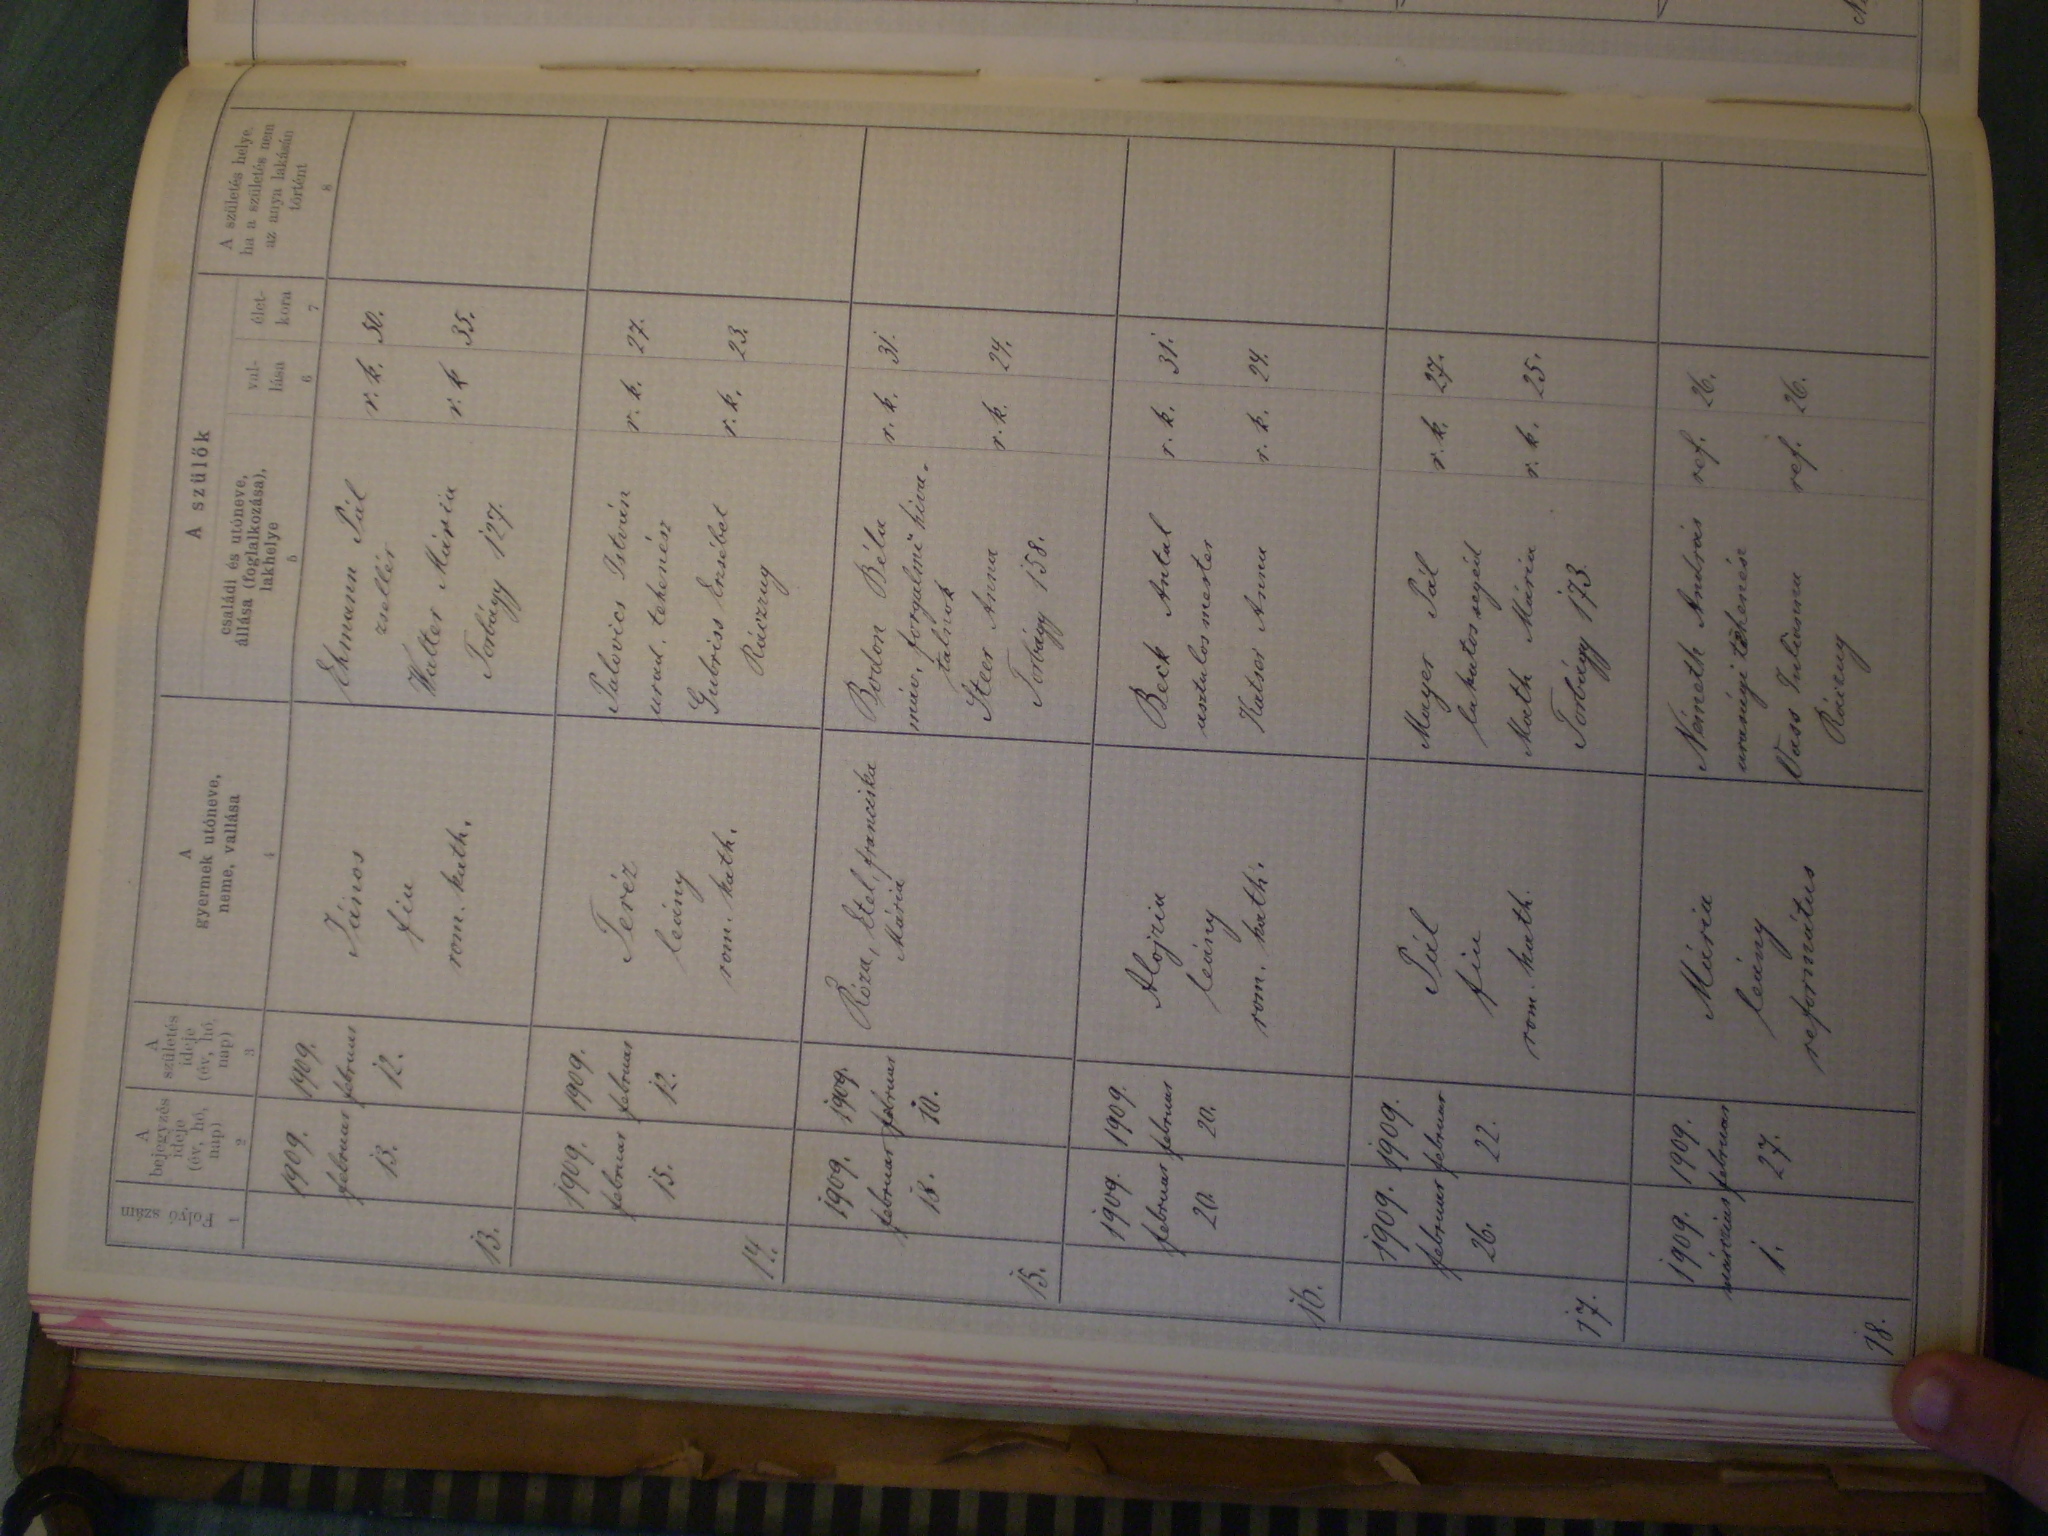 Folyó szám
1
A
bejegyzés
ideje
(év, hó,
nap)
2
A
születés
ideje
(év, hó,
nap)
3
A
gyermek utóneve,
neme, vallása
4
A szülők
családi és utóneve,
állása (foglalkozása),
lakhelye
5
val-
lása
6
élet-
kora
7
A születés helye,
ha a születés nem
az anya lakásán
történt
8
13.
1909.
februar
13.
1909.
februar
12.
János
fiu
rom. kath.
Ehmann Pál
zsellér
Walter Mária
Torbágy 127.
r. k. 50.
r. k 35.
14.
1909.
februar
15.
1909.
februar
12.
Teréz
leány
rom. kath.
Palovics István
urad. tehenész
Gubriss Erzsébet
Ráczzug
r. k. 27.
r. k. 23.
15.
1909.
februar
18.
1909.
februar
10.
Róza, Etel, franciska
Mária
Bodon Béla
máv. forgalmi hiva.
talnok
Steer Anna
Torbágy 158.
r. k. 31.
r. k. 24.
16.
1909.
februar
20.
1909.
februar
20.
Alojzia
leány
rom. kath.
Beck Antal
asztalosmester
Katsor Anna
r. k. 31.
r. k. 24.
17.
1909.
februar
26.
1909.
februar
22.
Pál
fiu
rom. kath.
Mayer Pál
lakatos segéd
Math Mária
Torbágy 173.
r. k. 27.
r. k. 25.
18.
1909.
márczius
1.
1909.
februar
27.
Mária
leány
református
Németh András
tehenés
Vass Julianna
Ráczzug
ref. 26.
ref. 26.